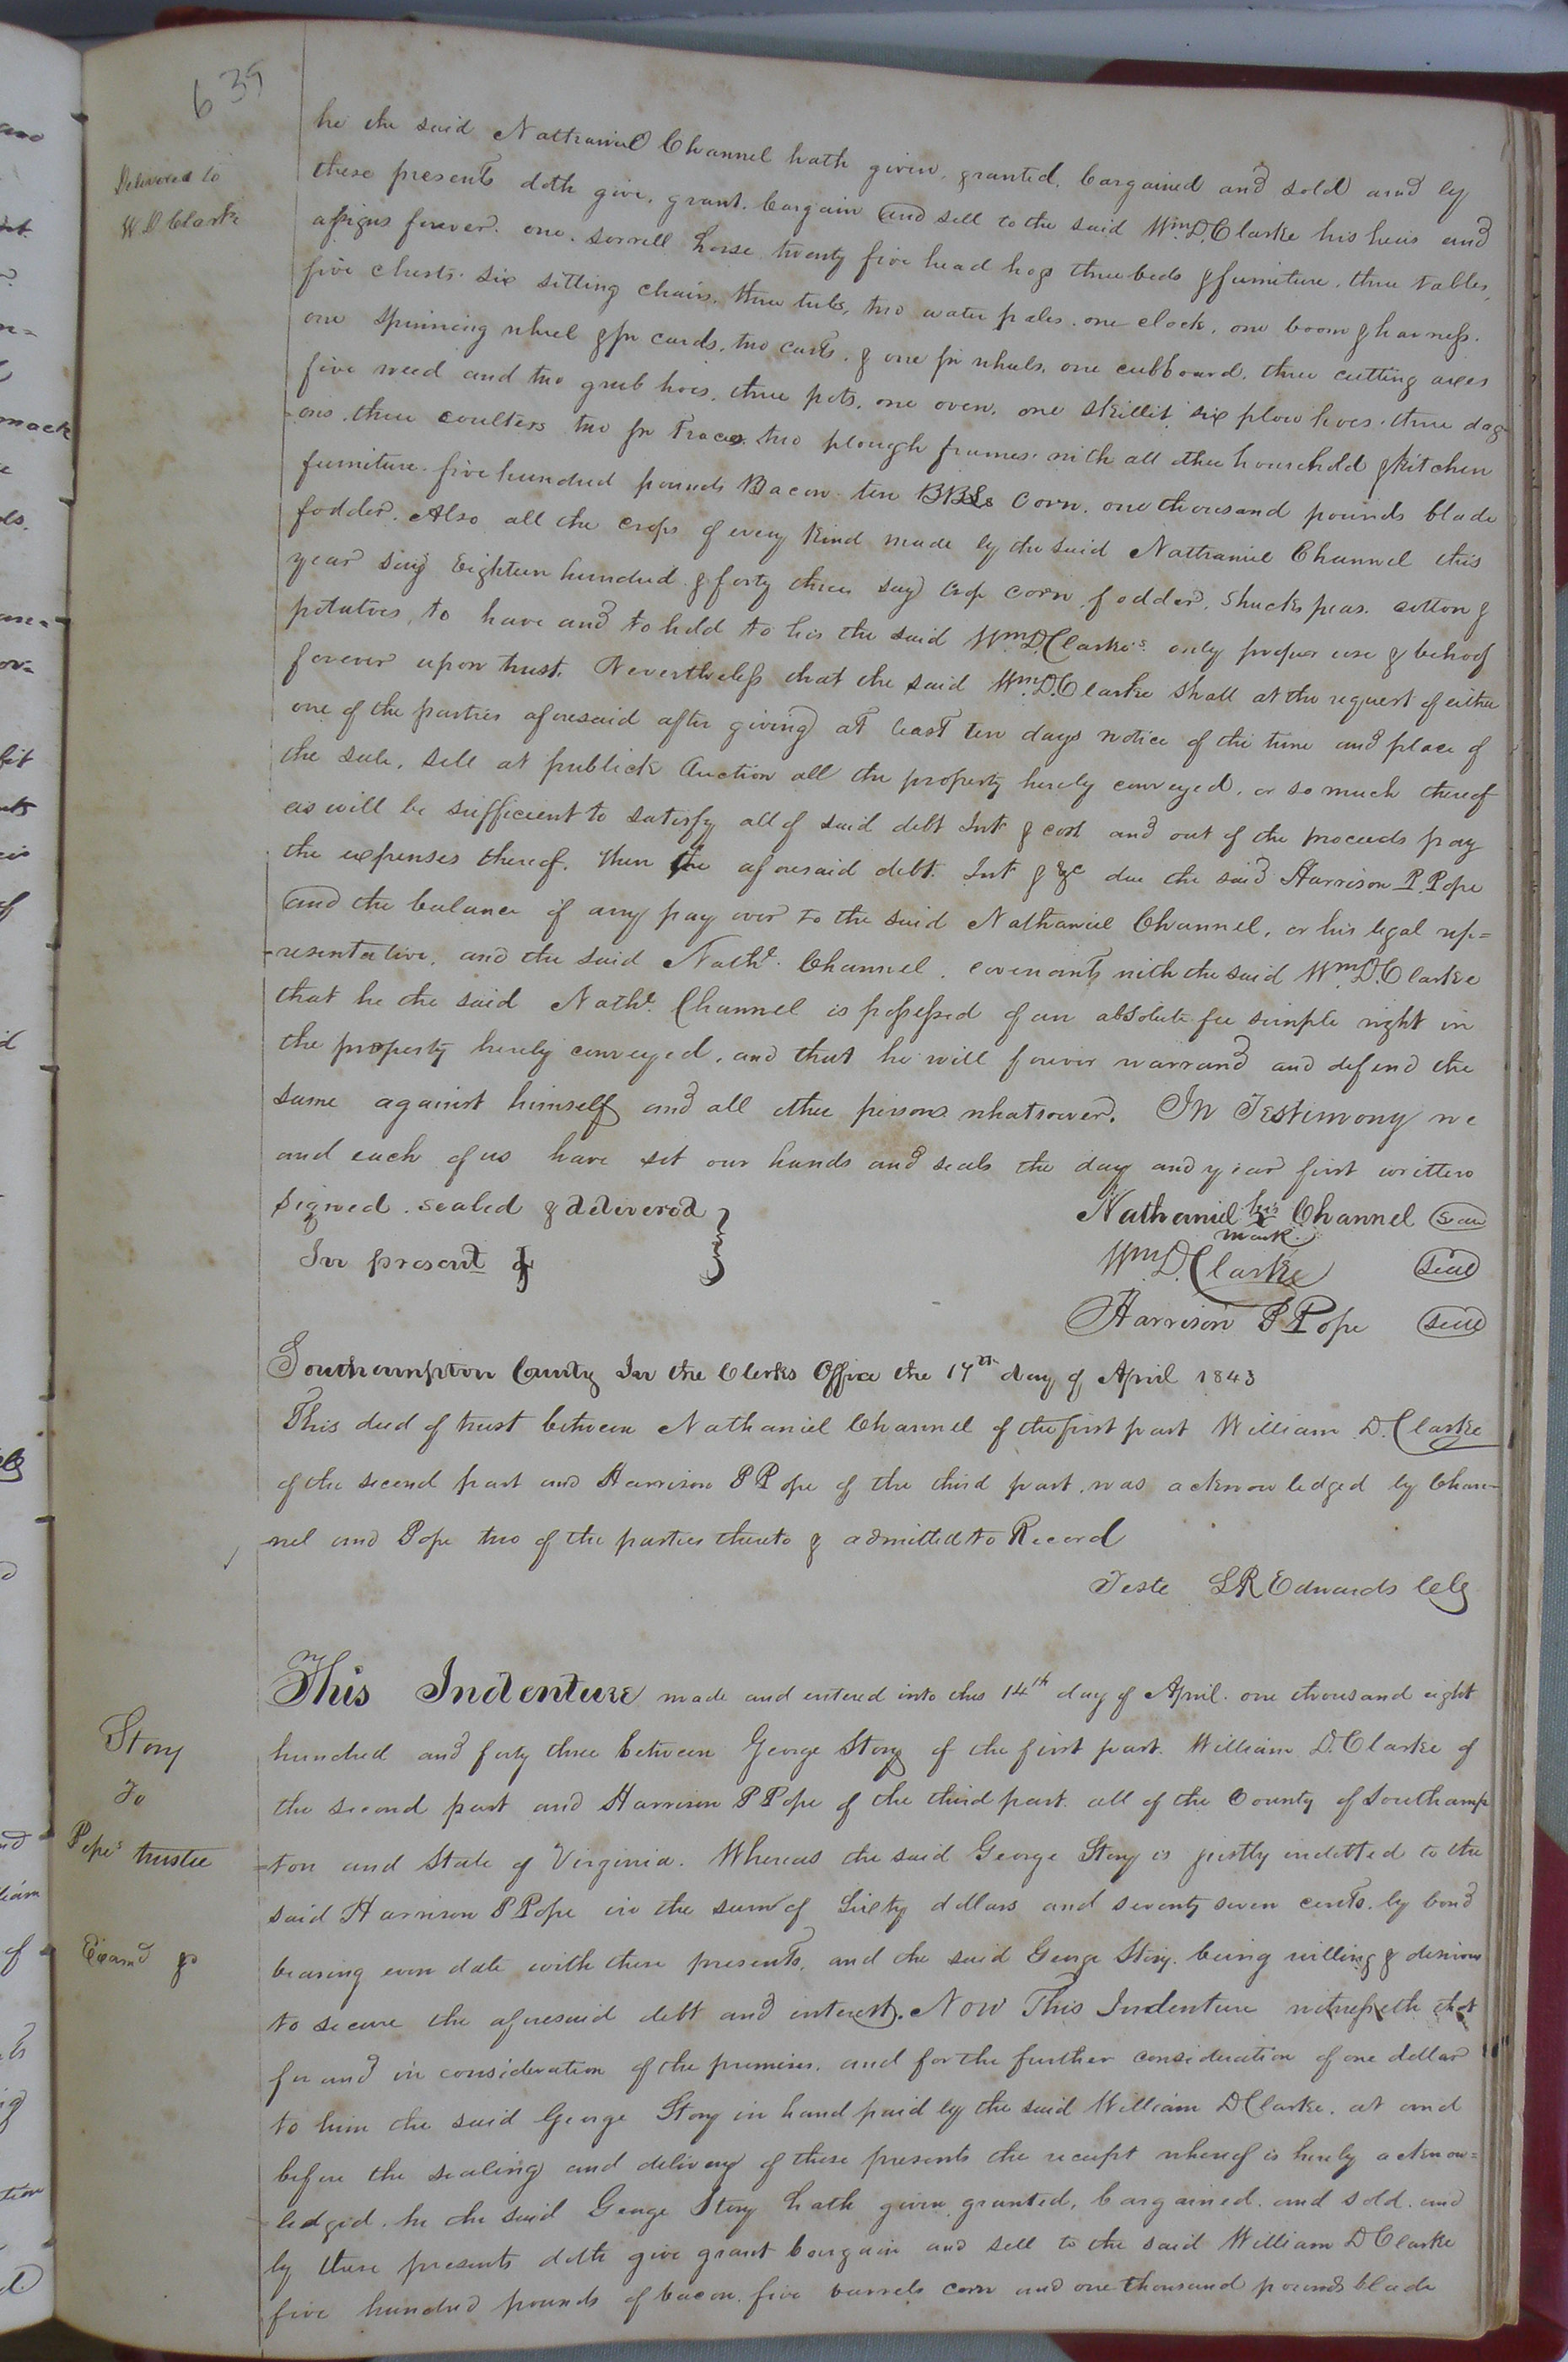 639
Delivered to
W D Clarke
he the said Nathaniel Channel hath given, granted, bargained and sold and by
these presents doth give, grant, bargain and sell to the said Wm. D. Clarke his heirs and
assigns forever. one sorrell horse twenty five head hogs three beds & furniture, three tables,
five chests. six sitting chairs, three tubs, two water pales. one clock, one loom & harness.
one spinning wheel & pr cards, two carts, & one pr wheels, one cubboard, three cutting axes
five weed and two grub hoes, three pots, one oven, one skillit six plow hoes, three dag-
-ons, three coulters two pr Traces two plough frames. with all other household & kitchen
furniture. five hundred pounds Bacon ten BBls Corn, one thousand pounds blade
fodder. Also all the crops of every kind made by the said Nathaniel Channel this
year Eighteen hundred & forty three say crop corn fodder, shucks peas. cotton &
potatoes, to have and to hold to his the said Wm. D. Clarke's only proper use & behoof
forever upon trust. Nevertheless that the said Wm. D. Clarke shall at the request of either
one of the parties aforesaid after giving at least ten days notice of the time and place of
the sale, sell at publick Auction all the property hereby conveyed, or so much thereof
as will be sufficient to satisfy all of said debt Int & cost and out of the proceeds pay
the expenses thereof. then the aforesaid debt. Int & &c due the said Harrison P. Pope
and the balance if any pay over to the said Nathaniel Channel, or his legal rep=
-resentative, and the said Nathl. Channel. covenants with the said Wm. D. Clarke
that he the said Nathl. Channel is possessed of an absolute fee simple right in
the property hereby conveyed, and that he will forever warrand and defend the
same against himself and all other persons whatsoever. In Testimony we
and each of us have set our hands and seals the day and year first written
Signed. sealed & delivered
In present of
Nathaniel his X mark Channel seal
Wm. D. Clarke seal
Harrison P Pope seal
Southampton County In the Clerks Office the 17th day of April 1843
This deed of trust between Nathaniel Channel of the first part William D. Clarke
of the second part and Harrison P Pope of the third part, was acknowledged by Chan-
-nel and Pope two of the parties thereto & admitted to Record
Teste LR Edwards Clk
Story
To
Pope's trustee
Examd
This Indenture made and entered into this 14th day of April. one thousand eight
hundred and forty three between George Story of the first part. William D. Clarke of
the second part and Harrison P Pope of the third part. all of the County of Southamp
=ton and State of Virginia. Whereas the said George Story is justly indetted to the
said Harrison P Pope in the sum of Sixty dollars and seventy seven cents. by bond
bearing even date with these presents, and the said George Story. being willing & desirous
to secure the aforesaid debt and interest. Now This Indenture witnesseth that
for and in consideration of the premises. and for the further consideration of one dollar
to him the said George Story in hand paid by the said William D Clarke. at and
before the sealing and delivery of these presents the receipt whereof is hereby acknow=
-ledged. he the said George Story hath given granted, bargained. and sold. and
by these presents doth give grant bargain and sell to the said William D Clarke
five hundred pounds of bacon. five barrels corn and one thousand pounds blade